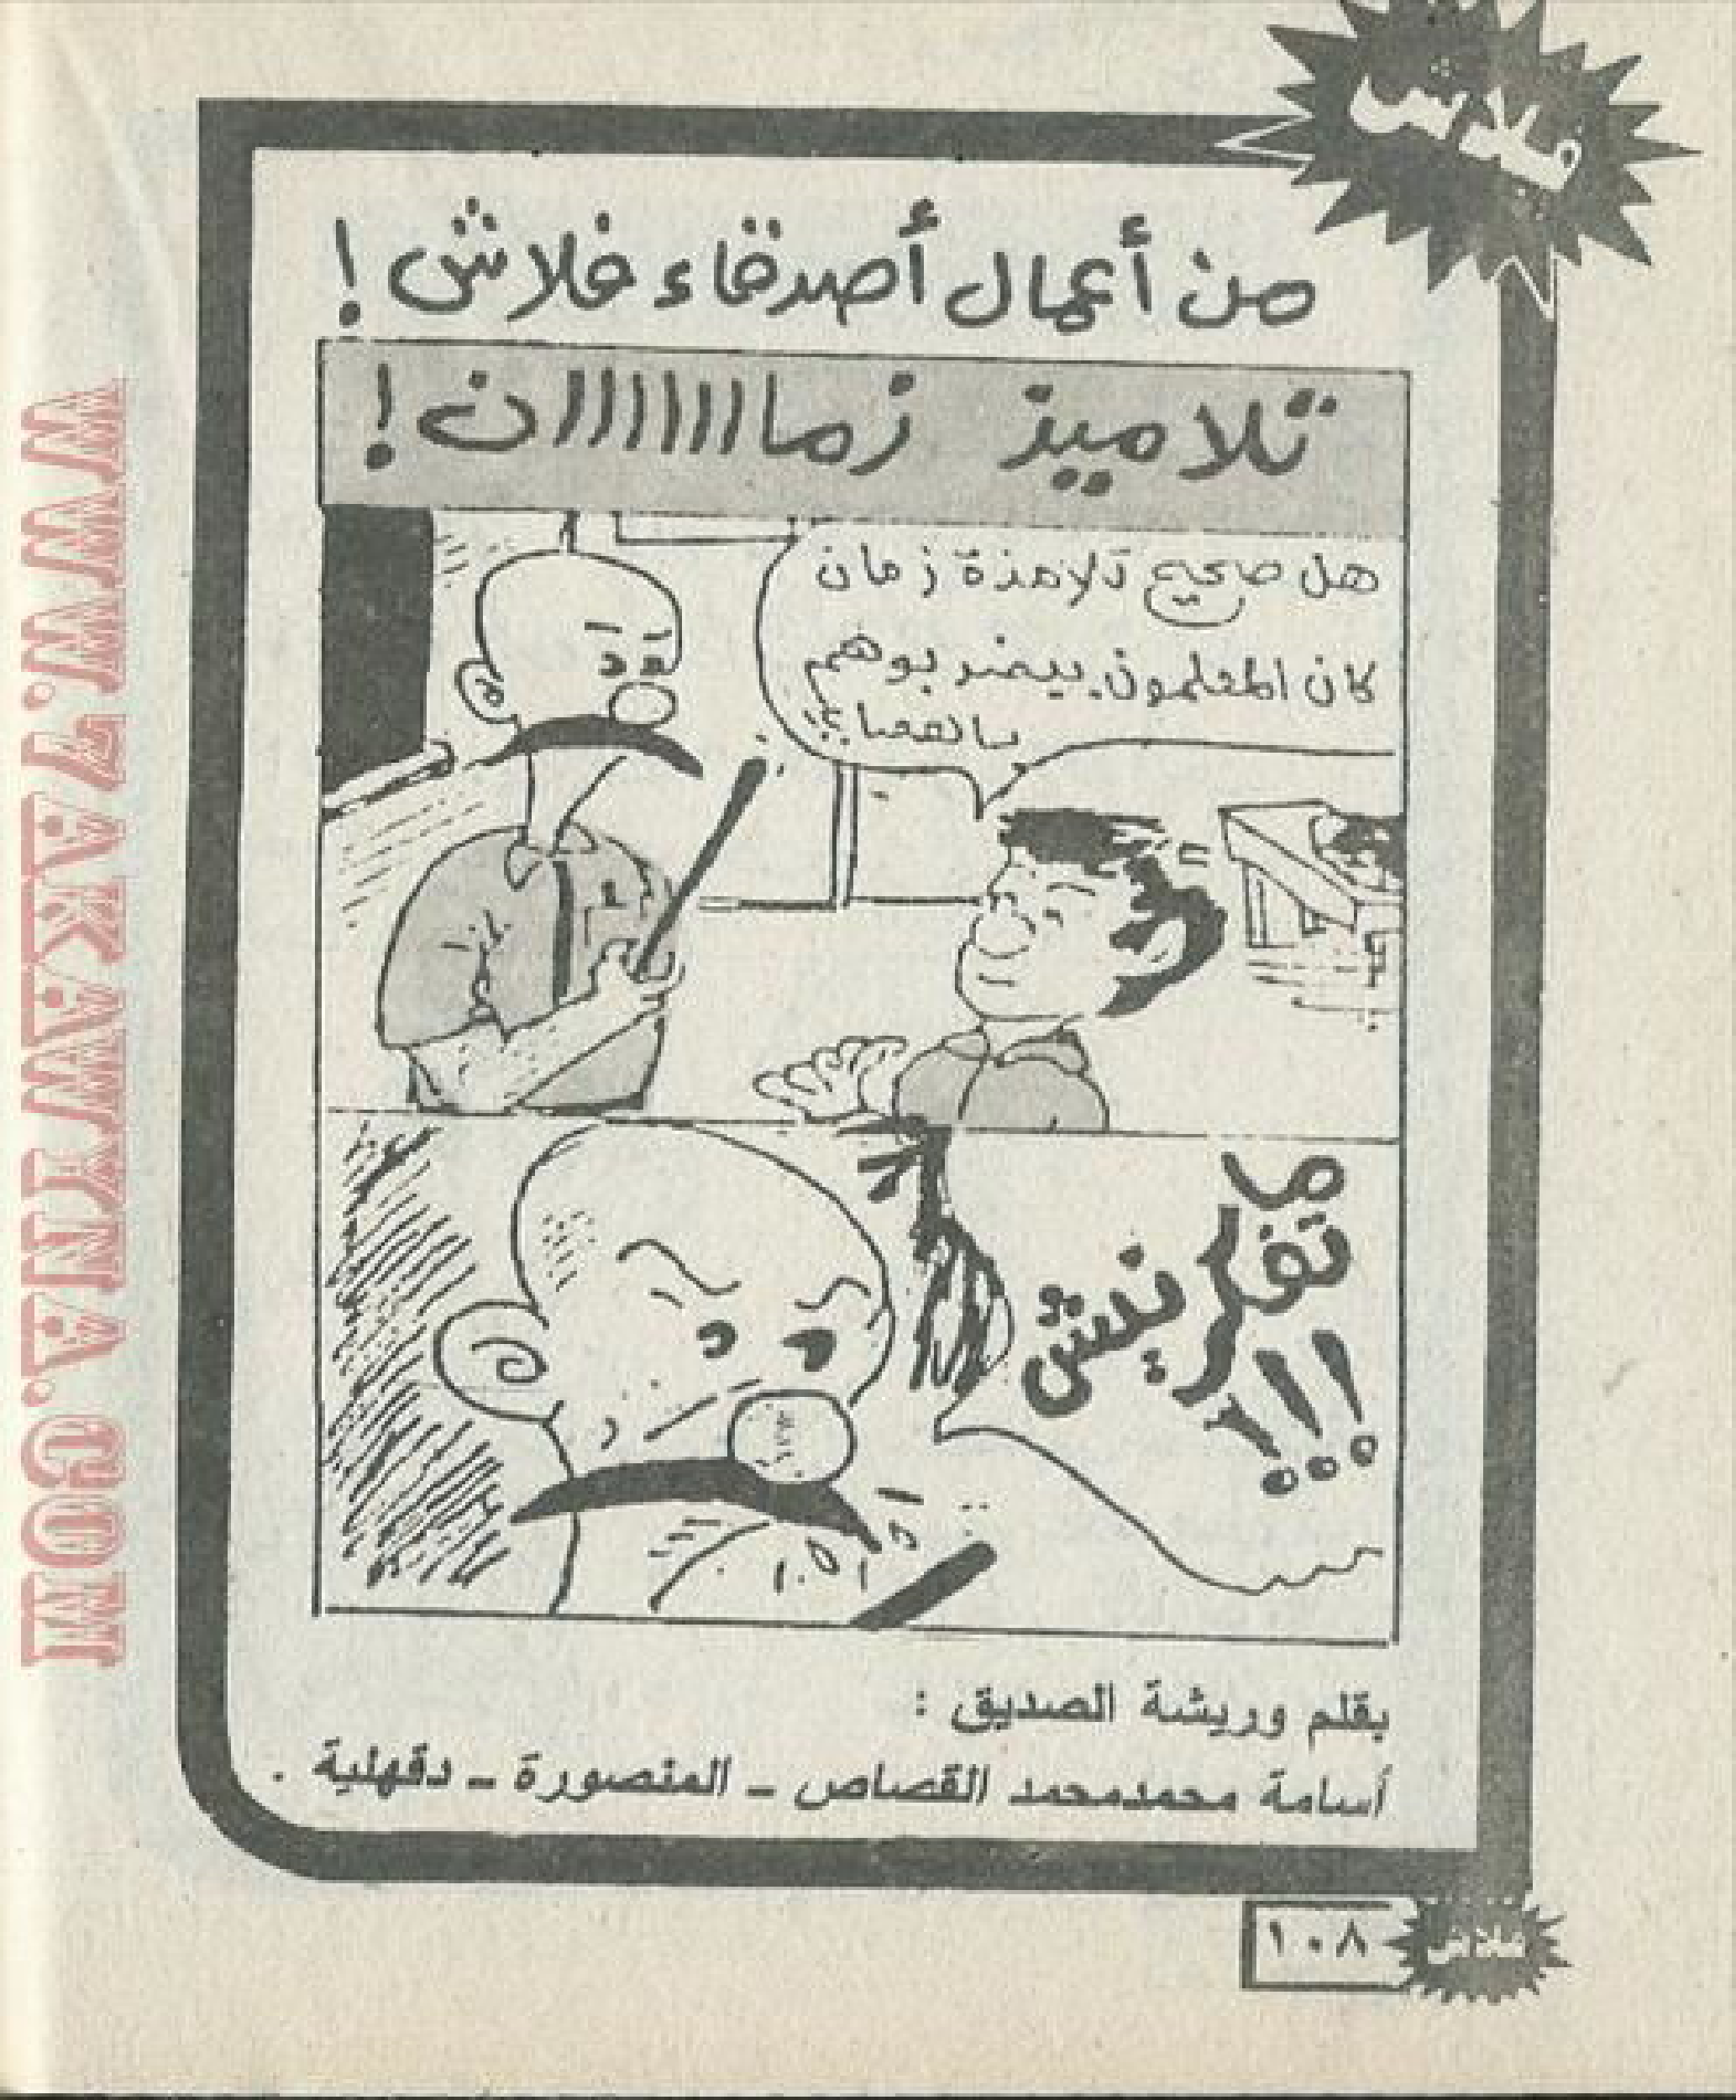 فلاش
من أعمال أصدقاء فلاش !
تلاميذ زمااااااان !
هل صحيح تلامذة زمان
كان المعلمون بيضربوهم
بالعصا
ما
تفكرنيش
!!!
بقلم وريشة الصديق :
أسامة محمدمحمد القصاص ـ المنصورة ـ دقهلية .
١٠٨
فلاش
WWW.7AKAWITNA.COM